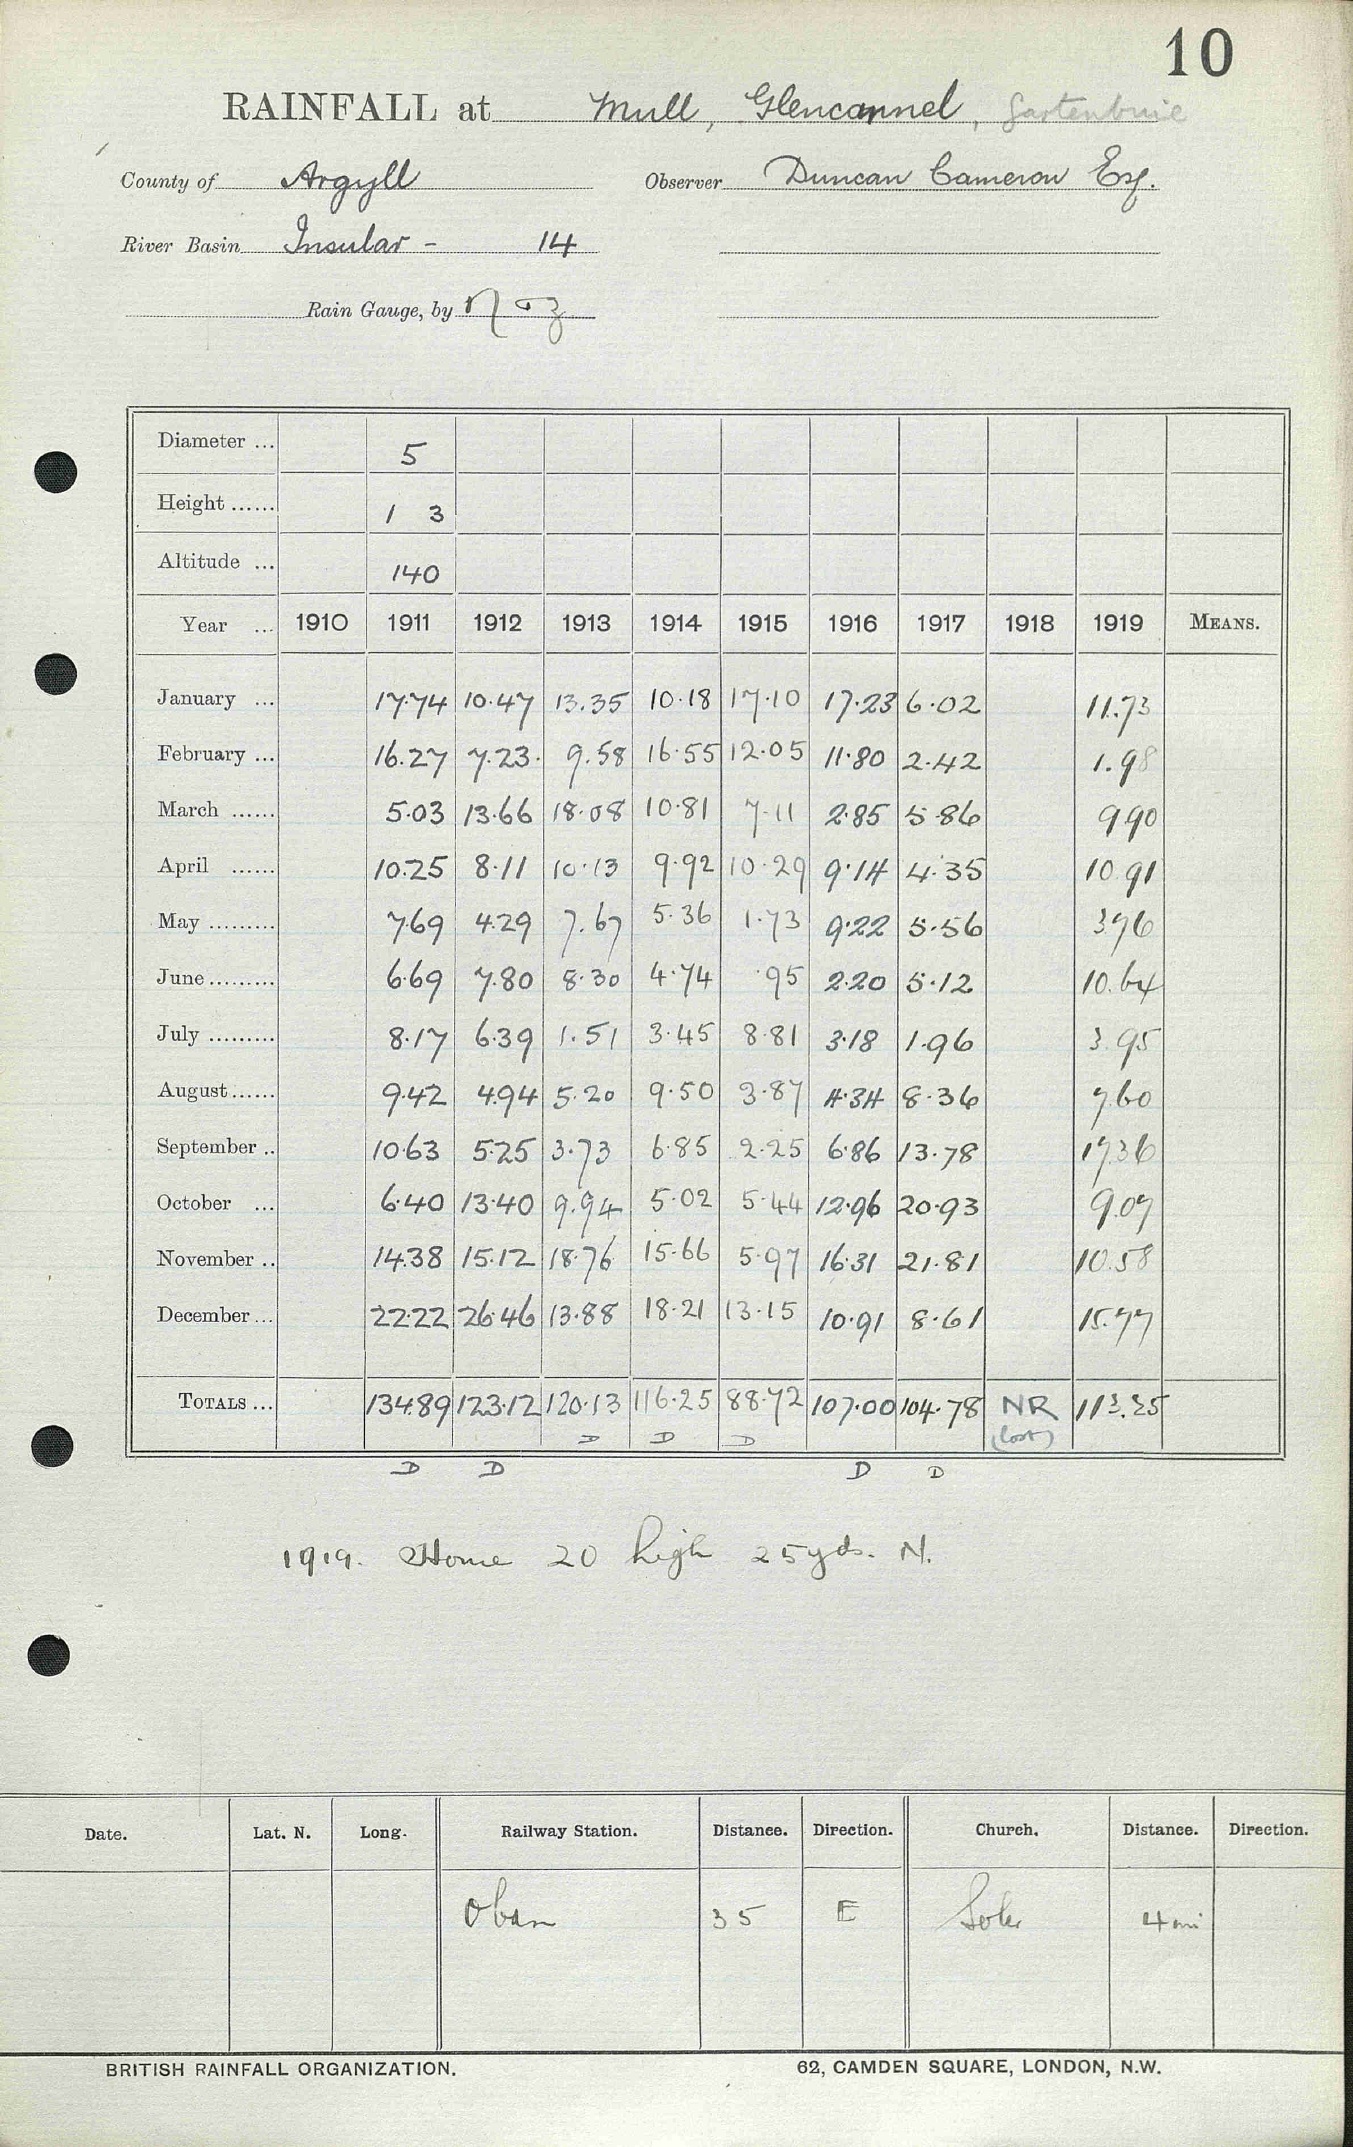 10
RAINFALL at Mull, Glencannel, Gartenbuie
County of Argyll Observer Duncan Cameron Esq.
River Basin Insular - 14
Rain Gauge, by
Diameter ... 5
Height ...... 1 3
Altitude ... 140
Year ... 1910 1911 1912 1913 1914 1915 1916 1917 1918 1919 MEANS.
January ... 17.74 10.47 13.35 10.18 17.10 17.23 6.02 11.73
February ... 16.27 7.23 9.58 16.55 12.05 11.80 2.42 1.98
March ...... 5.03 13.66 18.08 10.81 7.11 2.85 5.86 9.90
April ...... 10.25 8.11 10.13 9.92 10.29 9.14 4.35 10.91
May ......... 7.69 4.29 7.67 5.36 1.73 9.22 5.56 3.76
June ......... 6.69 7.80 8.30 4.74 .95 2.20 5.12 10.64
July ......... 8.17 6.39 1.51 3.45 8.81 3.18 1.96 3.95
August ...... 9.42 4.94 5.20 9.50 3.87 4.34 8.36 7.60
September .. 10.63 5.25 3.73 6.85 2.25 6.86 13.78 17.36
October ... 6.40 13.40 9.94 5.02 5.44 12.96 20.93 9.07
November .. 14.38 15.12 18.76 15.66 5.97 16.31 21.81 10.58
December ... 22.22 26.46 13.88 18.21 13.15 10.91 8.61 15.77
TOTALS ... 134.89 123.12 120.13 116.25 88.72 107.00 104.78 NR 113.25
(lost)
D D D
D D D D
1919. House 20 high 25 yds. N.
Date. Lat. N. Long. Railway Station. Distance. Direction. Church. Distance. Direction.
Oban 35 E 4 mi
BRITISH RAINFALL ORGANIZATION. 62, CAMDEN SQUARE, LONDON, N.W.